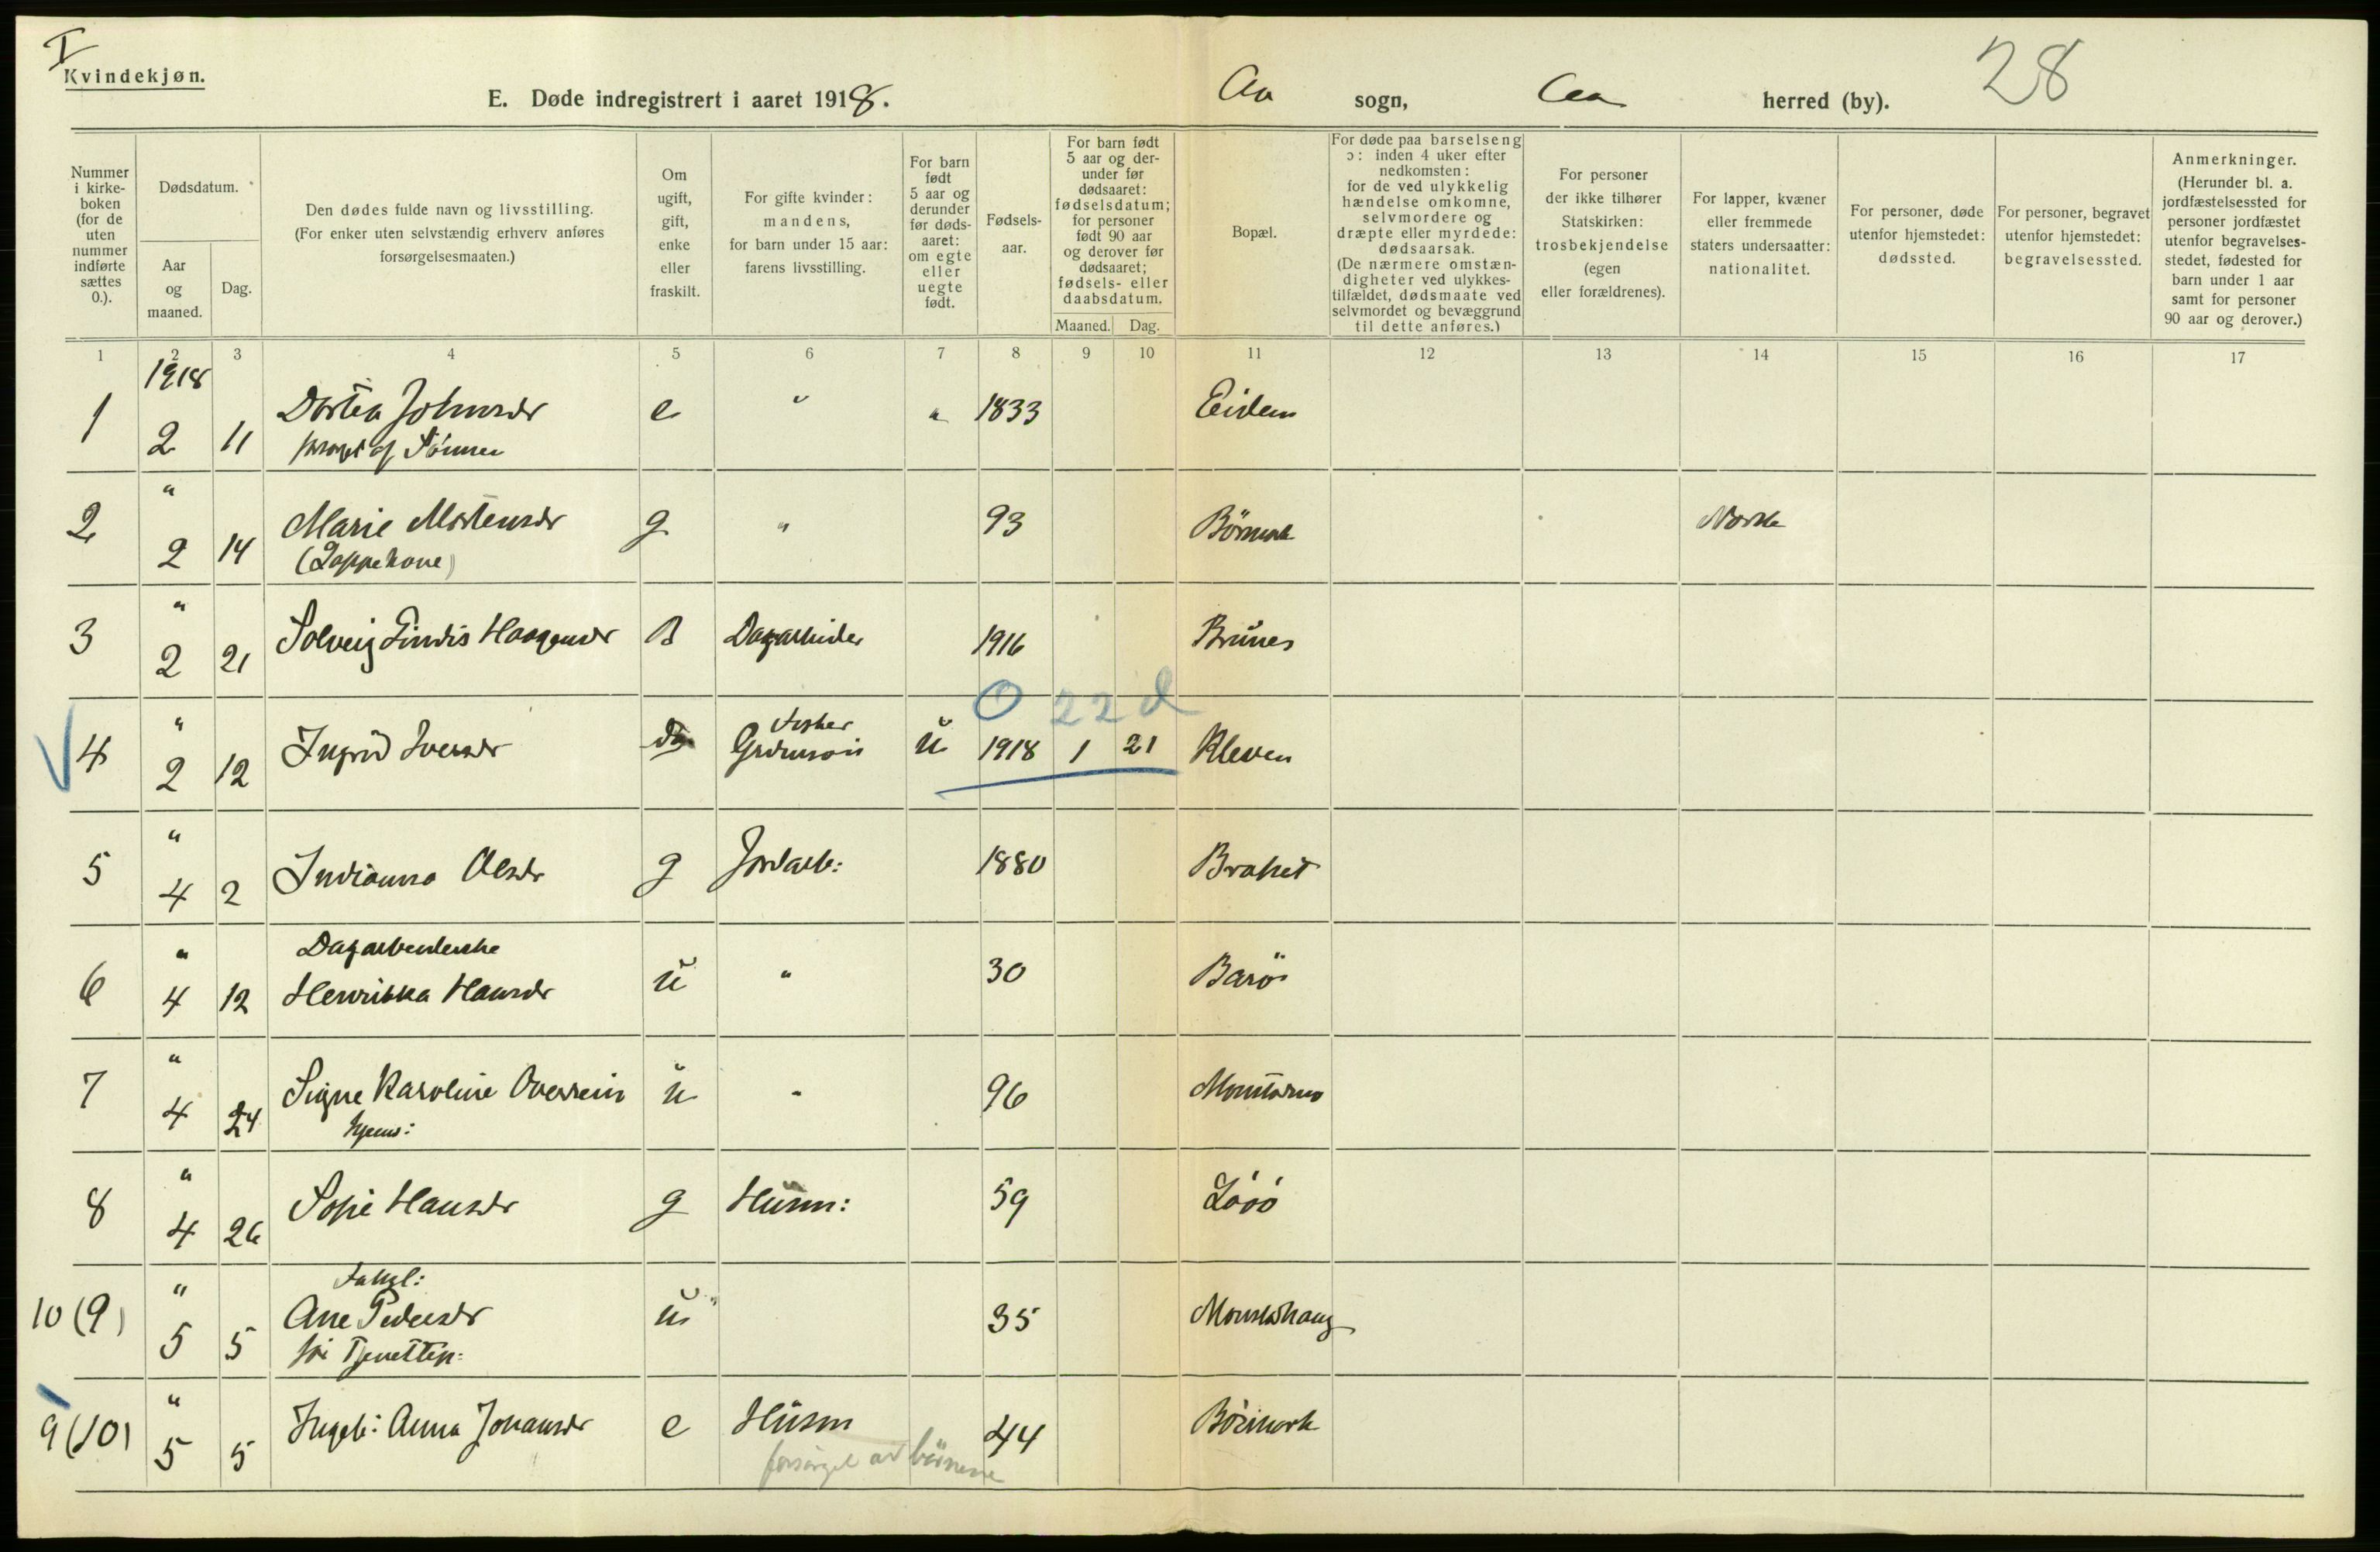 I
Kvindekjøn.
E. Døde indregistrert i aaret 1918.
Aa sogn, Aa herred (by).
28
Nummer i kirke- boken (for de uten nummer indførte sættes 0.).
Dødsdatum.
Aar og maaned.
Dag.
Den dødes fulde navn og livsstilling.
(For enker uten selvstændig erhverv anføres
forsørgelsesmaaten.)
Om ugift, gift, enke eller fraskilt.
For gifte kvinder:
mandens,
for barn under 15 aar:
farens livsstilling.
For barn født 5 aar og derunder før døds- aaret: om egte eller uegte født.
Fødsels- aar.
For barn født 5 aar og der- under før dødsaaret: fødselsdatum; for personer født 90 aar og derover før dødsaaret; fødsels- eller daabsdatum.
Maaned. Dag.
Bopæl.
For døde paa barselseng
ɔ: inden 4 uker efter
nedkomsten:
for de ved ulykkelig
hændelse omkomne,
selvmordere og
dræpte eller myrdede:
dødsaarsak.
(De nærmere omstæn-
digheter ved ulykkes-
tilfældet, dødsmaate ved
selvmordet og bevæggrund
til dette anføres.)
For personer
der ikke tilhører
Statskirken:
trosbekjendelse
(egen
eller forældrenes).
For lapper, kvæner
eller fremmede
staters undersaatter:
nationalitet.
For personer, døde
utenfor hjemstedet:
dødssted.
For personer, begravet
utenfor hjemstedet:
begravelsessted.
Anmerkninger.
(Herunder bl. a.
jordfæstelsessted for
personer jordfæstet
utenfor begravelses-
stedet, fødested for
barn under 1 aar
samt for personer
90 aar og derover.)
1 2 3 4 5 6 7 8 9 10 11 12 13 14 15 16 17
1918
1 2 11 Dortea Johnsdr e " " 1833 Eidem
af Sønner
"
2 2 14 Marie Mortensdr g " 93 Norsk
(Lappekone)
"
3 2 21 Solveig Haagensdr B Dagarbider 1916 Brunes
0 22 d
" Fisker
4 2 12 Ingrid Iversdr u 1918 1 21 Kleven
"
5 4 2 Indianna Olsdr g Jordarb: 1880 Braset
" Dagarbeiderske
6 4 12 Henrikka Hansdr u " 30 Barö
"
7 4 24 Signe Karoline Overrein u - 96
hjems:
"
8 4 26 Sofie Hansdr g Husm: 59
" Fattigl:
10 (9) 5 5 Ane Pedersdr u " 35 Monshaug
"
9 (10) 5 5 Ingeb: Anna Johansdr e Husm 44 Börmark
forsörget av börnene